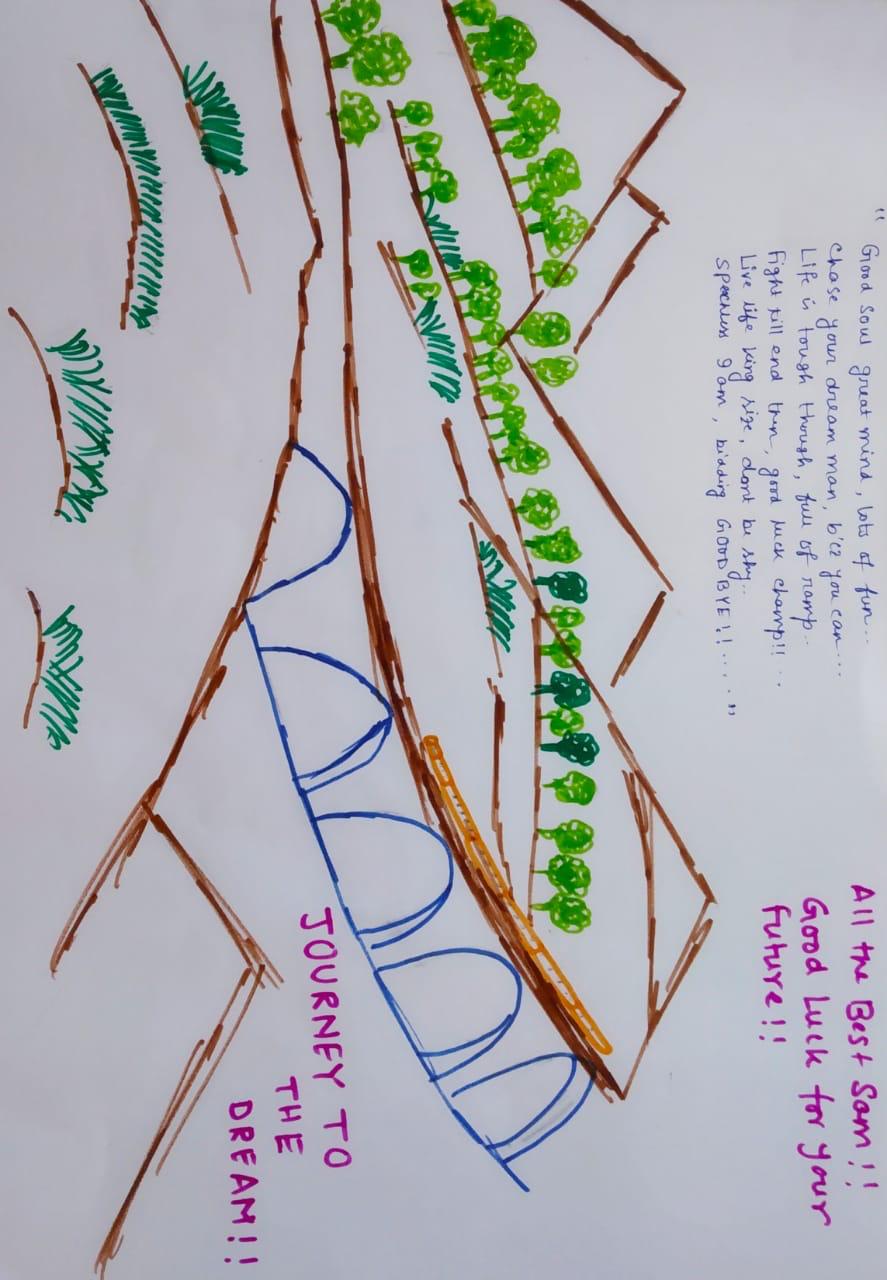 " Good Soul great mind, lots of fun...
Chase your dream man, b'cz you can...
Life is tough though, full of ramp..
Fight till end then, good luck champ!!...
Live life king size, dont be shy..
Speechless I am, bidding GOOD BYE!!...."
All the Best Sam!!
Good Luck for your
future!!
JOURNEY TO
THE
DREAM!!